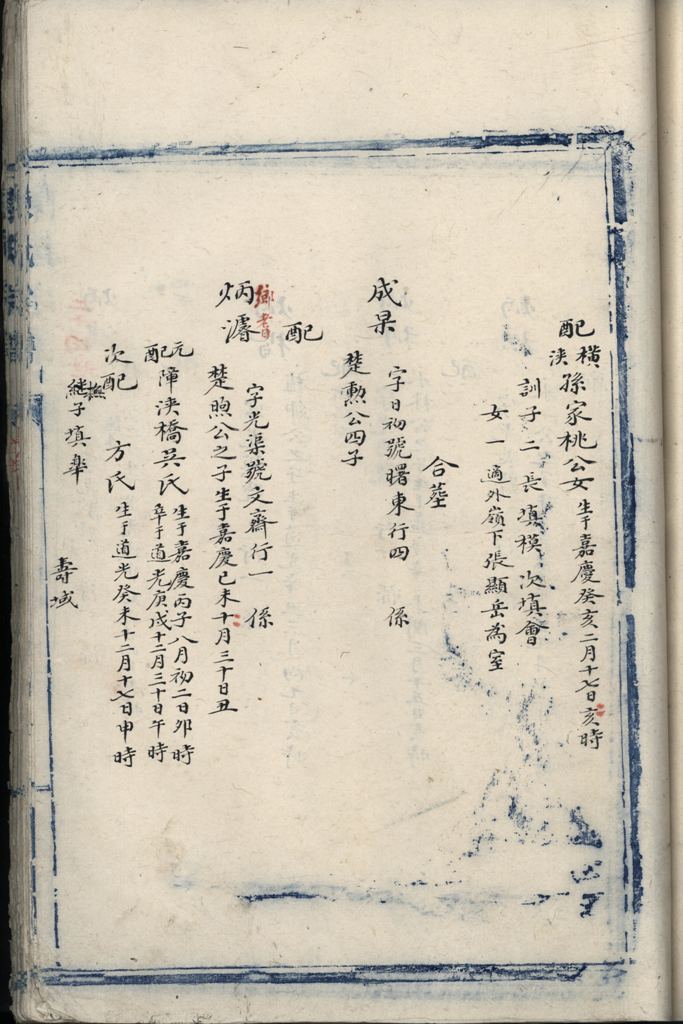 配橫渓孫家桃公女生于嘉慶癸亥二月十七日亥時
訓子二長填模次填會
女一適外嶺下張顯岳為室
合塟
成杲字日初號曙東行四係
楚勲公四子
配
鄉耆
炳濬字光渠號文齋行一係
楚煦公之子生于嘉慶己未十月三十日丑
元配障渓橋吴氏生于嘉慶丙子八月初二日夘時
卒于道光庚戌十二月三十日午時
次配方氏生于道光癸未十二月十七日申時
撫継子填華
壽域